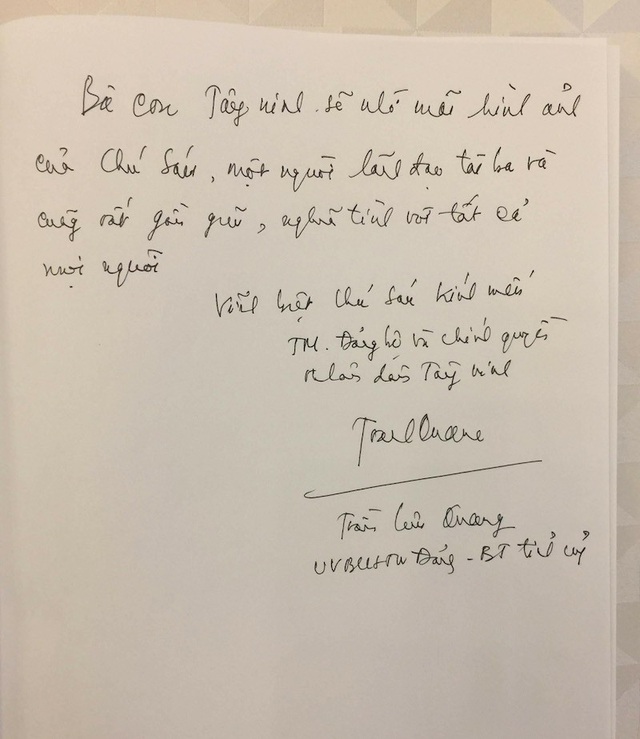 Bà con Tây ninh sẽ nhớ mãi hình ảnh
của Chú Sáu, một người lãnh đạo tài ba và
cũng rất gần gũi, nghĩa tình với tất cả
mọi người
Vĩnh biệt Chú Sáu kính mến
TM. Đảng bộ và chính quyền
nhân dân Tây ninh
Trần Lưu Quang
UVBCHTW Đảng - BT tỉnh uỷ